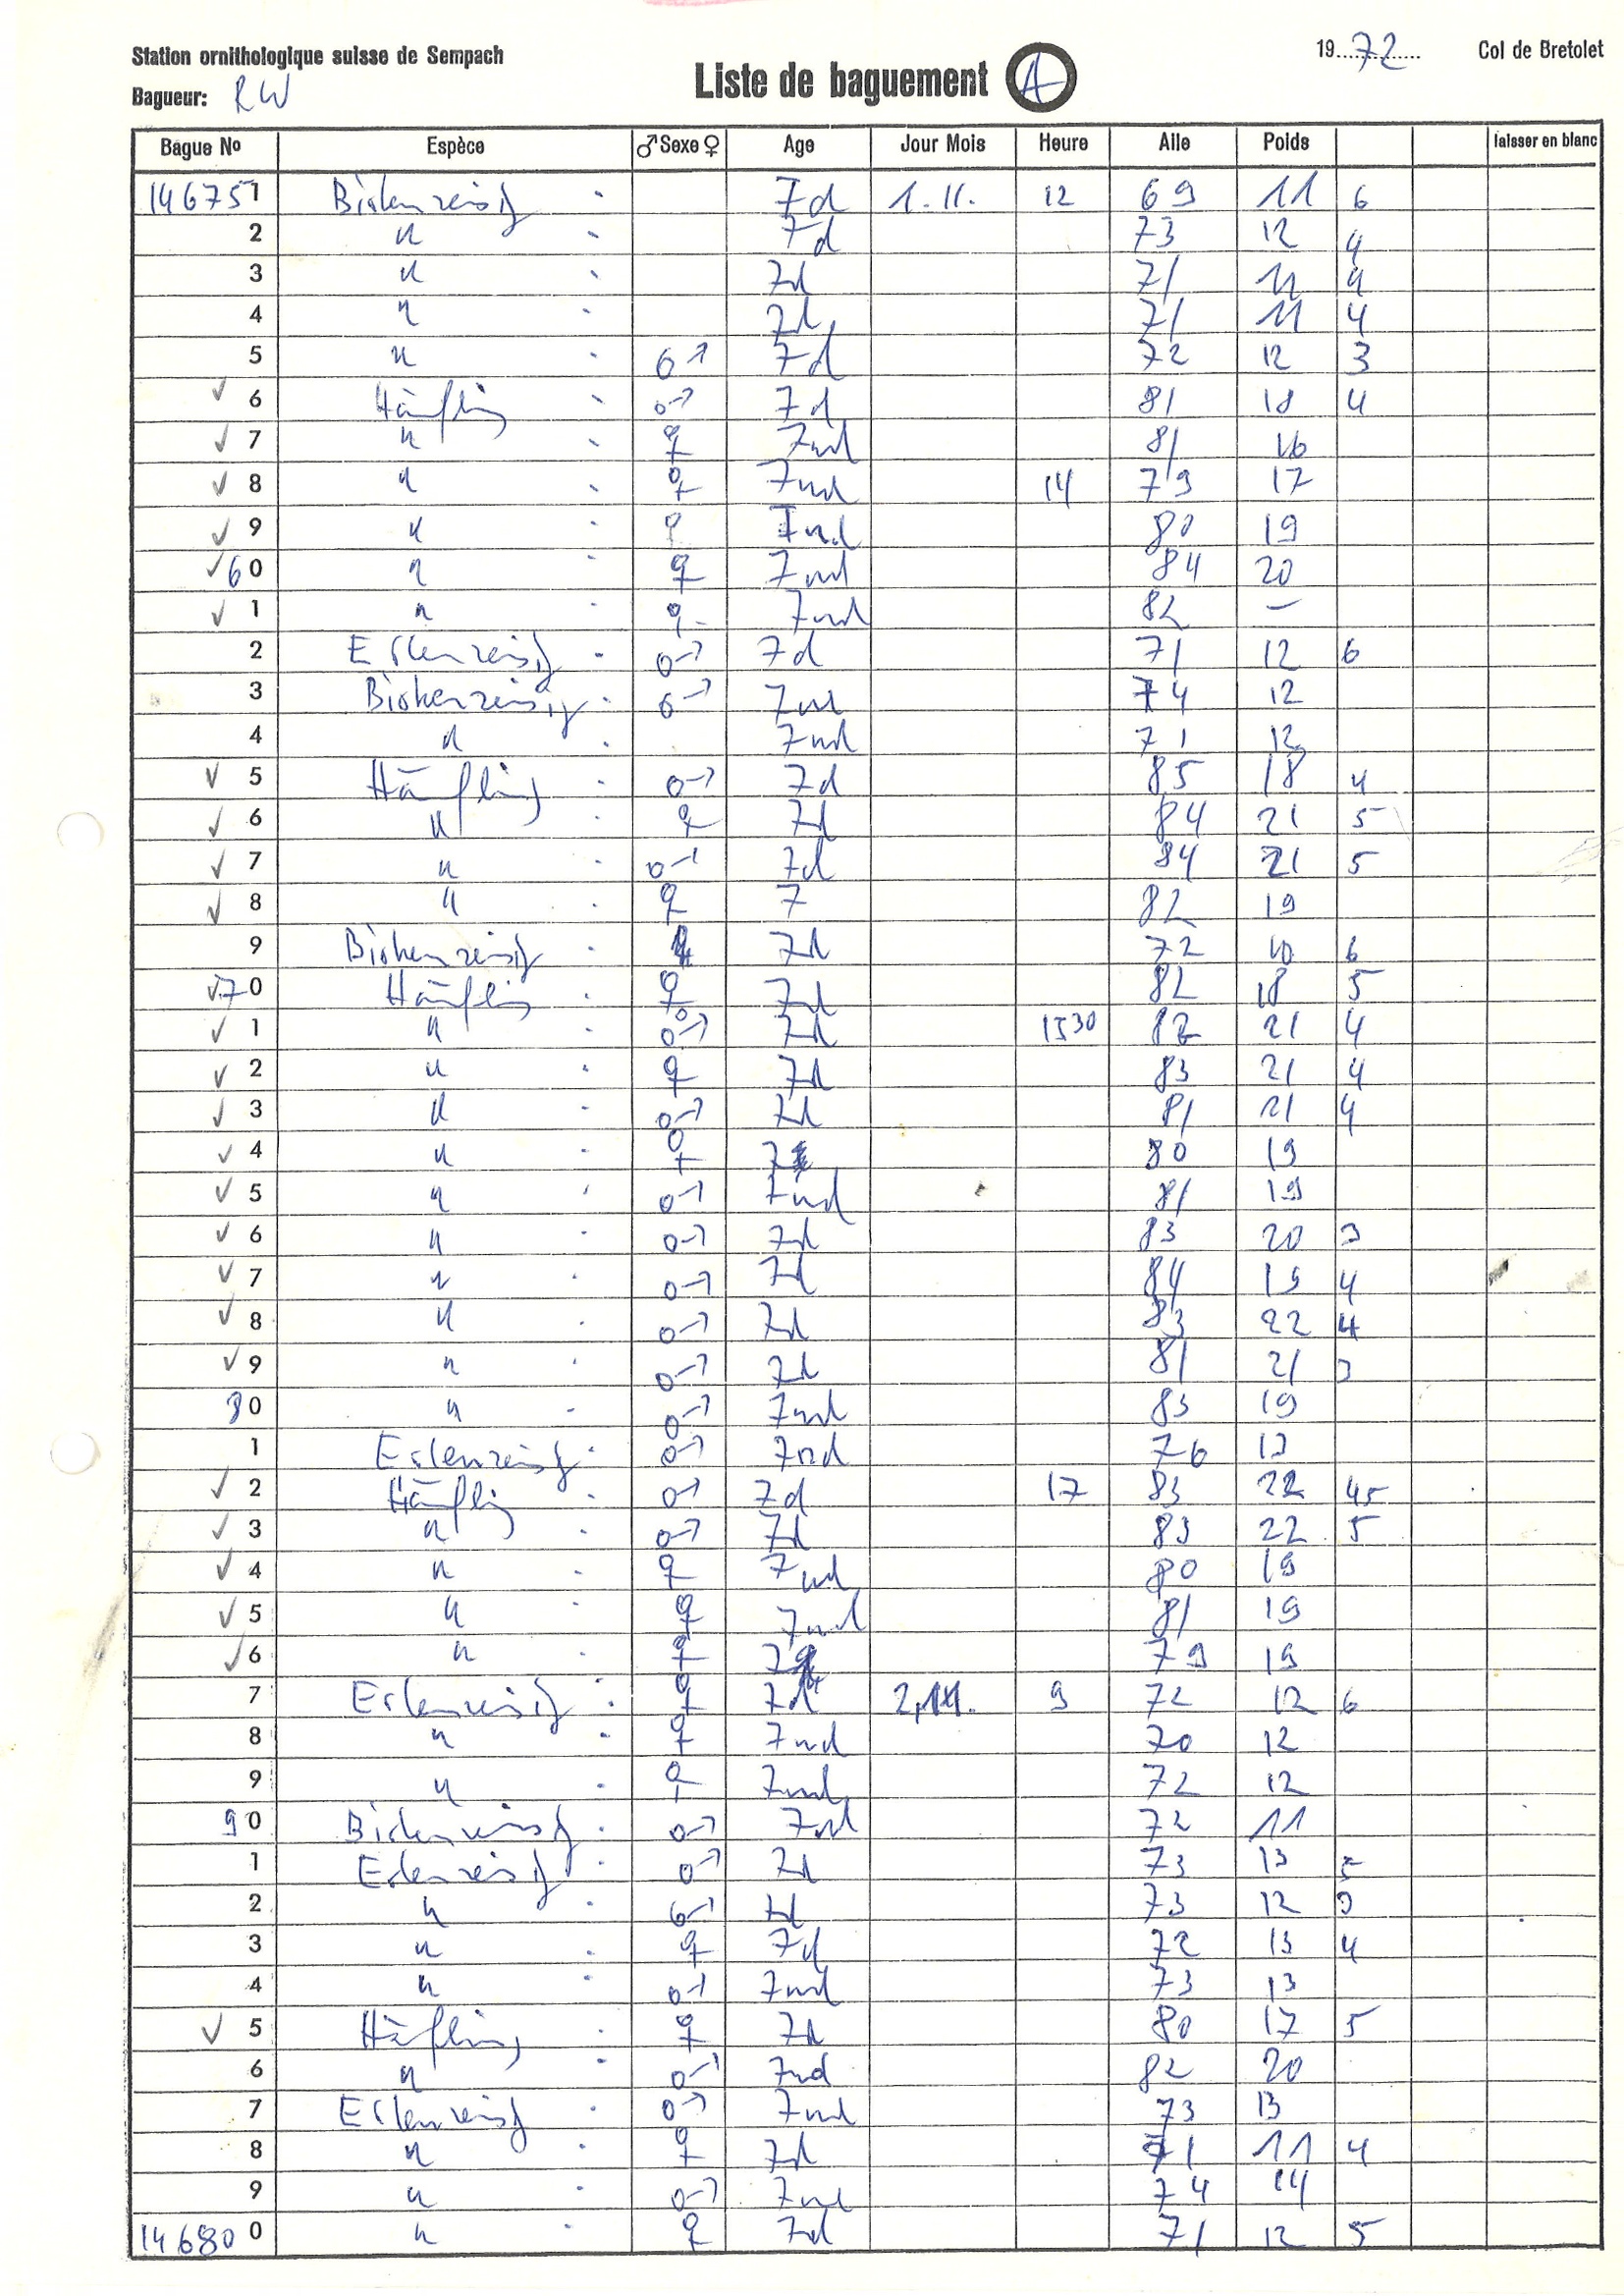 Station ornithologique suisse de Sempach
19 72 Col de Bretolet
Liste de baguement A
Bagueur: RW
Bague No Espèce ♂ Sexe ♀ Age Jour Mois Heure Aile Poids laisser en blanc
146751 Birkenzeisig 7d 1.11. 12 69 11 6
2 " 7d 73 12 4
3 " 7d 71 11 4
4 " 7d 71 11 4
5 " ♂ 7d 72 12 3
✓ 6 Hänfling ♂ 7d 81 18 4
✓ 7 " ♀ 7nd 81 16
✓ 8 " ♀ 7nd 14 79 17
✓ 9 " ♀ 7nd 80 19
✓ 60 " ♀ 7nd 84 20
✓ 1 " ♀ 7nd 82 –
2 Erlenzeisig ♂ 7d 71 12 6
3 Birkenzeisig ♂ 7nd 74 12
4 " 7nd 71 12
✓ 5 Hänfling ♂ 7d 85 18 4
✓ 6 " ♀ 7d 84 21 5
✓ 7 " ♂ 7d 84 21 5
✓ 8 " ♀ 7 82 19
9 Birkenzeisig 7d 72 10 6
✓ 70 Hänfling ♀ 7d 82 18 5
✓ 1 " ♂ 7d 1530 82 21 4
✓ 2 " ♀ 7d 83 21 4
✓ 3 " ♂ 7d 81 21 4
✓ 4 " ♀ 7 80 19
✓ 5 " ♂ 7nd 81 19
✓ 6 " ♂ 7d 83 20 3
✓ 7 " ♂ 7d 84 19 4
✓ 8 " ♂ 7d 83 22 4
✓ 9 " ♂ 7d 81 21 3
80 " ♂ 7nd 83 19
1 Erlenzeisig ♂ 7nd 76 13
✓ 2 Hänfling ♂ 7d 17 83 22 45
✓ 3 " ♂ 7d 83 22 5
✓ 4 " ♀ 7nd 80 19
✓ 5 " ♀ 7nd 81 19
✓ 6 " ♀ 7 79 19
7 Erlenzeisig ♀ 7d 2.11. 9 72 12 6
8 " ♀ 7nd 70 12
9 " ♀ 7nd 72 12
90 Birkenzeisig ♂ 7nd 72 11
1 Erlenzeisig ♂ 7d 73 13 5
2 " ♂ 7d 73 12 3
3 " ♀ 7d 72 13 4
4 " ♂ 7nd 73 13
✓ 5 Hänfling ♀ 7d 80 17 5
6 " ♂ 7nd 82 20
7 Erlenzeisig ♂ 7nd 73 13
8 " ♀ 7d 71 11 4
9 " ♂ 7nd 74 14
146800 " ♀ 7d 71 12 5